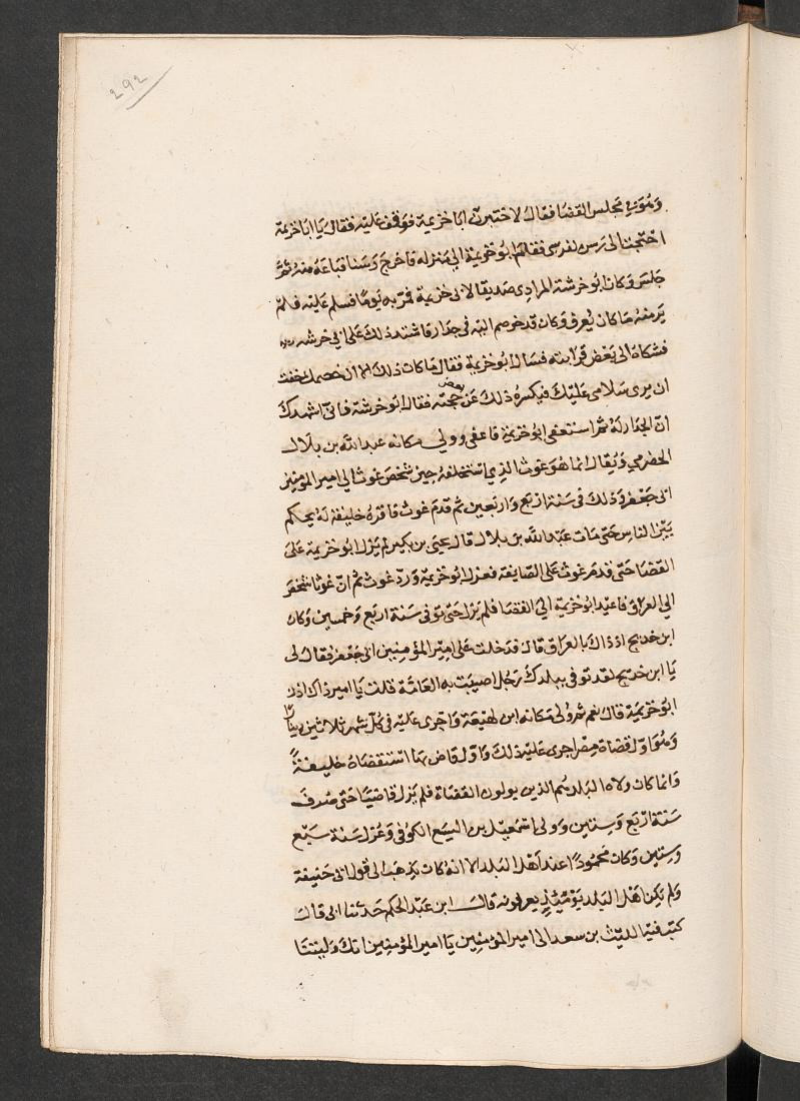 292
وهو في مجلس القضا فقال لاختبرن ابا خزيمة فوقف عليه فقال يا ابا خزيمة
احتجت الى رسن لفرسى فقام ابو خزيمة الي منزله فاخرج رسنا فباعه منه ثم
جلس وكان ابو خرشة المرادى صديقا لابى خزيمة فمر به يوما فسلم عليه فلم
ير منه ما كان يعرف وكان قد خوصم اليه في جدار فاشتد ذلك على ابي خرشه
فشكاه الى بعض قرابته فسال ابو خزيمة فقال ما كان ذلك الا ان خصمك خفت
ان يرى سلامى عليك فيكسره ذلك عن بعض حجته فقال ابو خرشة فانى اشهدك
ان الجدار له ثم استعفى ابو خزيمة فاعفى وولي مكانه عبد الله بن بلال
الحضرمي ويقال انما هو غوث الذي استخلفه حين شخص غوث الي امير المؤمنين
ابى جعفر وذلك فى سنة اربع واربعين ثم قدم غوث فاقره خليفة له يحكم
بين الناس حتى مات عبد الله بن بلال قال يحيى بن بكير لم يزل ابو خزيمة على
القضا حتى قدم غوث على الصايفة فعزل ابو خزيمة ورد غوث ثم ان غوثا شخص
الي العراق فاعيد ابو خزيمة الي القضا فلم يزل حتى توفى سنة اربع وخمسين وكان
ابن خديج اذ ذاك بالعراق قال فدخلت على امير المؤمنين ابى جعفر فقال لى
يا ابن خديج لقد توفي ببلدك رجل اصيبت به العامة قلت يا امير ذاك اذن
ابو خزيمة قال نعم ثم ولى مكانه ابن لهيعة واجرى عليه فى كل شهر ثلاثين دينارا
وهو اول قضاة مصر اجرى عليه ذلك واول قاض بها استقضاه خليفة
وانما كان ولاه البلد هم الذين يولون القضاة فلم يزل قاضيا حتى صرف
سنة اربع وستين وولى اسمعيل بن اليسع الكوفى وعزل سنة سبع
وستين وكان محمودا عند اهل البلد الا انه كان يذهب الى قول ابى حنيفة
ولم يكن اهل البلد يومئذ يعرفونه قال ابن عبد الحكم حدثنا ابى قال
كتب فيه الليث بن سعد الى امير المؤمنين يا امير المؤمنين انك وليتنا